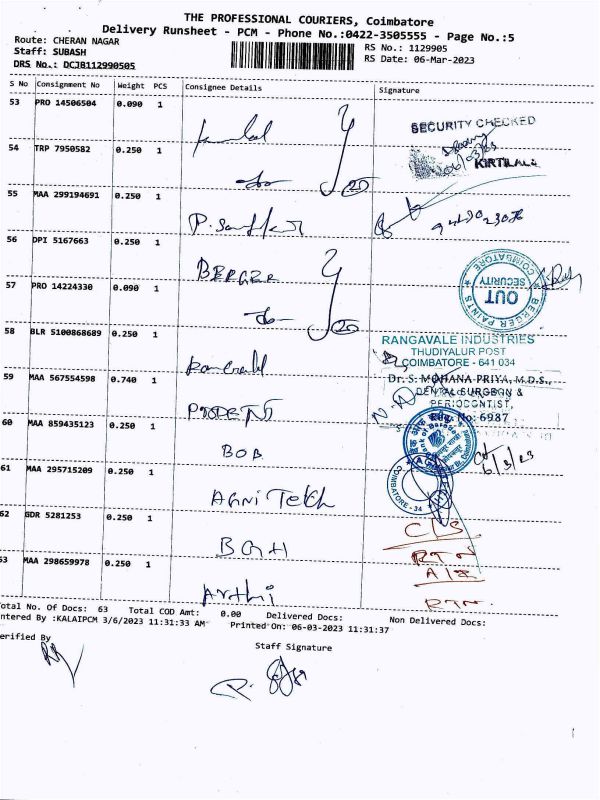 THE PROFESSIONAL COURIERS, Coimbatore
Delivery Runsheet - PCM - Phone No.:0422-3505555 - Page No.:5
Route: CHERAN NAGAR
RS No.: 1129905
Staff: SUBASH
RS Date: 06-Mar-2023
DRS No.: DCJB112990505
S No Consignment No Weight PCS Consignee Details Signature
53 PRO 14506504 0.090 1
SECURITY CHECKED
54 TRP 7950582 0.250 1
KIRTILALS
55 MAA 299194691 0.250 1
56 DPI 5167663 0.250 1 BERGER
BERGER PAINTS COIMBATORE
SECURITY
OUT
57 PRO 14224330 0.090 1
58 BLR 5100868689 0.250 1
RANGAVALE INDUSTRIES
THUDIYALUR POST
COIMBATORE - 641 034
59 MAA 567554598 0.740 1
Dr. S. MOHANA PRIYA, M.D.S.,
DENTAL SURGEON &
PERIODONTIST,
Reg. No: 6987
60 MAA 859435123 1 BOB
6/3/23
61 MAA 295715209 0.250 1 AGNI TEKH
COIMBATORE - 34
62 GDR 5281253 0.250 1 BGH
C/S
RTN
63 MAA 298659978 0.250 1 Arthi
RTN.
Total No. Of Docs: 63 Total COD Amt: 0.00 Delivered Docs: Non Delivered Docs:
ntered By :KALAIPCM 3/6/2023 11:31:33 AM Printed On: 06-03-2023 11:31:37
erified By
Staff Signature